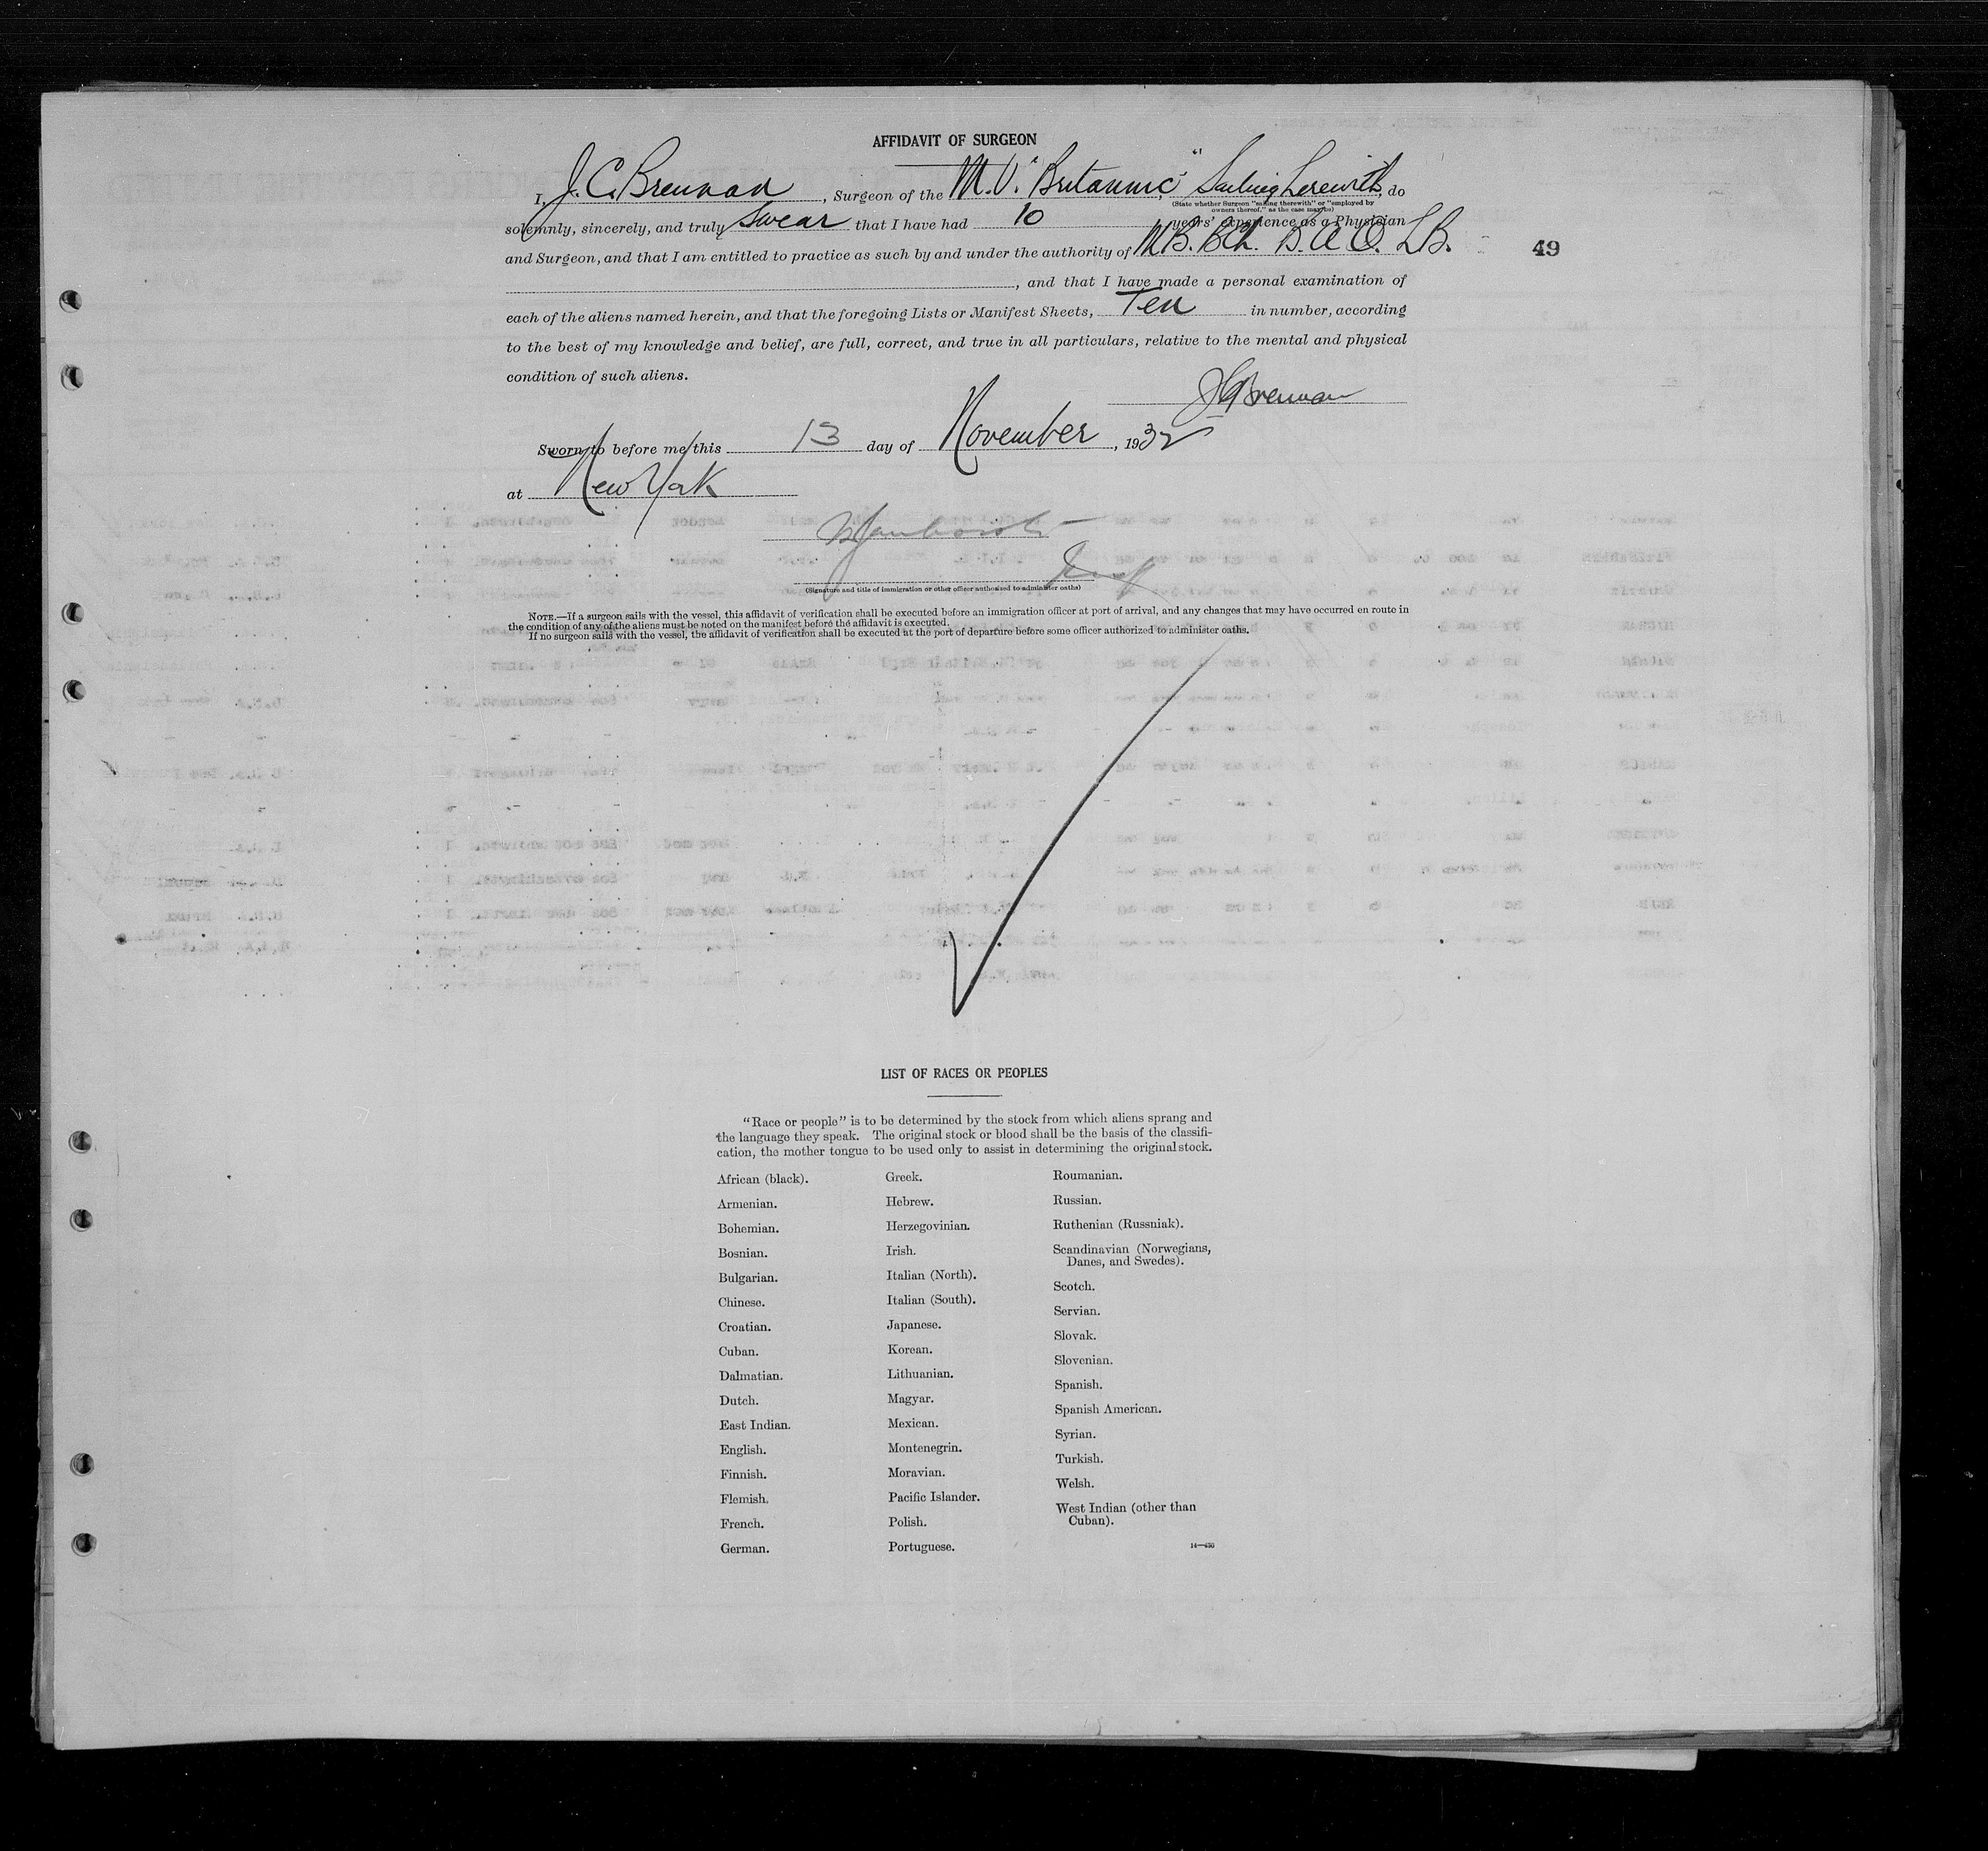 AFFIDAVIT OF SURGEON
I, J. C. Brennan, Surgeon of the M.V. "Britannic," Sailing herewith, do
(State whether Surgeon "sailing therewith" or "employed by
owners thereof," as the case may be)
solemnly, sincerely, and truly swear that I have had 10 years' experience as a Physician
and Surgeon, and that I am entitled to practice as such by and under the authority of M.B. B.Ch. B.A.O.
49
, and that I have made a personal examination of
each of the aliens named herein, and that the foregoing Lists or Manifest Sheets, Ten in number, according
to the best of my knowledge and belief, are full, correct, and true in all particulars, relative to the mental and physical
condition of such aliens.
J C Brennan
Sworn to before me this 13 day of November, 1932
at New York
(Signature and title of immigration or other officer authorized to administer oaths)
NOTE.—If a surgeon sails with the vessel, this affidavit of verification shall be executed before an immigration officer at port of arrival, and any changes that may have occurred en route in
the condition of any of the aliens must be noted on the manifest before the affidavit is executed.
If no surgeon sails with the vessel, the affidavit of verification shall be executed at the port of departure before some officer authorized to administer oaths.
LIST OF RACES OR PEOPLES
"Race or people" is to be determined by the stock from which aliens sprang and
the language they speak. The original stock or blood shall be the basis of the classifi-
cation, the mother tongue to be used only to assist in determining the original stock.
African (black).
Armenian.
Bohemian.
Bosnian.
Bulgarian.
Chinese.
Croatian.
Cuban.
Dalmatian.
Dutch.
East Indian.
English.
Finnish.
Flemish.
French.
German.
Greek.
Hebrew.
Herzegovinian.
Irish.
Italian (North).
Italian (South).
Japanese.
Korean.
Lithuanian.
Magyar.
Mexican.
Montenegrin.
Moravian.
Pacific Islander.
Polish.
Portuguese.
Roumanian.
Russian.
Ruthenian (Russniak).
Scandinavian (Norwegians,
Danes, and Swedes).
Scotch.
Servian.
Slovak.
Slovenian.
Spanish.
Spanish American.
Syrian.
Turkish.
Welsh.
West Indian (other than
Cuban).
14—430